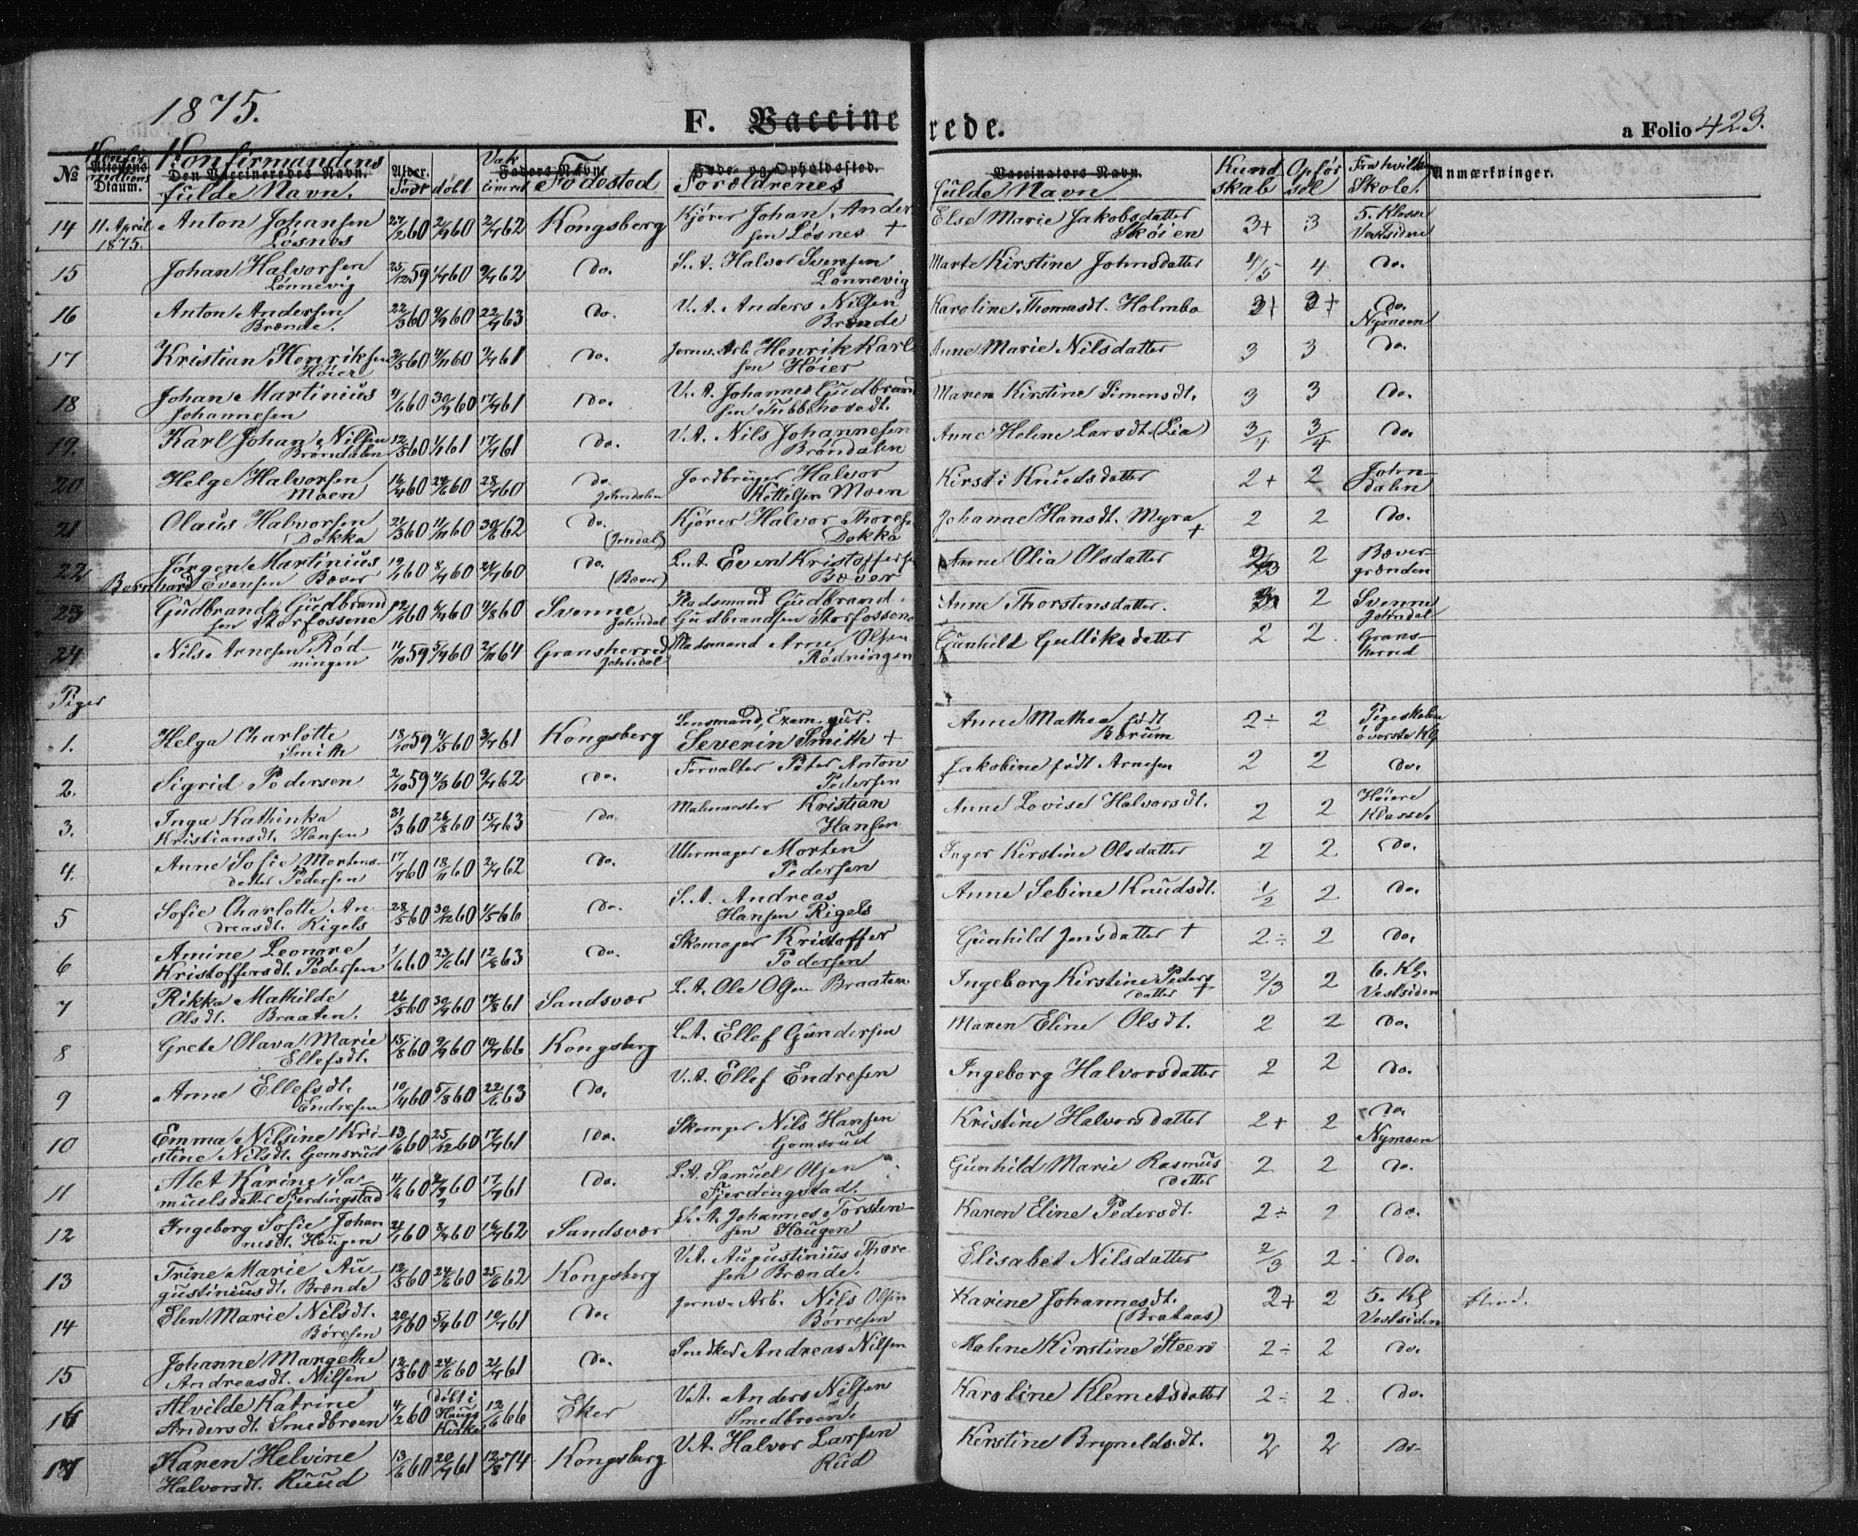 1875.
F. Vaccinerede.
a Folio 423.
№ Konfirmandens fulde Navn. Født døbt Fødested Forældrenes fulde Navn Kundskab Opførsel Fra hvilken Skole. Anmærkninger.
14 11 April 1875. Anton Johansen Løsnes 60 60 62 Kongsberg Kjører Johan Andersen Løsnes + Else Marie Jakobsdatter Skøien 3+ 3 5. Klasse Vestsiden
15 Johan Halvorsen Lønnevig 25/12 59 60 62 do. Halvor Svensen Lønnevig Marte Kirstine Johnsdatter 4/5 4 do.
16 Anton Andersen Brænde. 22/3 60 60 22/7 63 do. Anders Nilsen Brænde Karoline Thomasdt. Holmbo 3+ do. Nymoen
17 Kristian Henriksen Høier 60 60 61 do. Jernv. Arb. Henrik Karlsen Høier Anne Marie Nilsdatter 3 3 do.
18 Johan Martinius Johannesen 60 30/9 60 17/7 61 do. Johannes Gudbrandsen Maren Kirstine Simensdt. 3 3 do.
19. Karl Johan Nilsen Brøndalen 12/5 60 61 17/7 61 do. Nils Johannesen Brøndalen Anne Helene Larsdt. (Lia) 3/4 3/4 do.
20 Helge Halvorsen Moen 16/4 60 60 28/7 60 do. Johndalen Jordbruger Halvor Kittilsen Moen Kirsti Knudsdatter 2+ 2 Johndalen
21 Olaus Halvorsen Dokka 21/3 60 60 62 do. (Jondal) Kjører Halvor Thoresen Dokka Johanne Hansdt. Myra + 2 2 do.
22 Jørgen Martinius Bernhard Evensen Bæver 60 60 60 do. (Bæver) Even Kristoffersen Bæver Anne Olia Olsdatter 2 Bævergrænden
23 Gudbrand Gudbrandsen Storfossene 60 60 60 Svenne Johndal Pladsmand Gudbrand Gudbrandsen Storfossene Anne Thorstensdatter. 2 Svenne Johndal
24 Nils Arnesen Rødningen 59 60 64 Gransherred Johndal Pladsmand Arne Olsen Rødningen Gunhild Gulliksdatter 2 2. Gransherred
Piger
1. Helga Charlotte Smith 18/10 59 60 61 Kongsberg Lensmand, Exam. jur. Severin Smith + Anne Mathea født Bærum 2÷ 2 Pigeskolen øverste Kl.
2. Sigrid Pedersen 2/10 59 60 62 do. Forvalter Peter Anton Pedersen Jakobine født Arnesen 2 2 do.
3. Inga Kathinka Kristiansdt. Hansen 31/3 60 26/8 60 15/7 63 do Malermester Kristian Hansen Anne Lovise Halvorsdt. 2 2 Høiere Klasse.
4. Anne Sofie Mortensdatter Pedersen 17/7 60 18/11 60 62 do. Uhrmager Morten Pedersen Inger Kirstine Olsdatter 2 2 do.
5 Sofie Charlotte Andreasdt. Rigels 28/5 60 30/12 60 66 do. Andreas Hansen Rigels Anne Sebine Knudsdt. 1/2 2 do.
6 Amine Leonore Kristoffersdt. Pedersen 1/6 60 23/6 61 12/8 63 do. Skomager Kristoffer Pedersen Gunhild Jensdatter + 2÷ 2 do.
7 Rikka Mathilde Olsdt. Braaten. 26/5 60 30/9 60 61 Sandsvær Ole Olsen Braaten Ingeborg Kirstine Pedersdatter + 2/3 2 6. Kl. Vestsiden
8 Grete Olava Marie Ellefsdt. 15/8 60 60 66 Kongsberg Ellef Gundersen Maren Eline Olsdt. 2 2 do.
9 Anne Ellefsdt. Endresen 10/4 60 5/8 60 22/6 63 do. Ellef Endresen Ingeborg Halvorsdatter 2 2 do.
10 Emma Nilsine Kristine Nilsdt. Gomsrud 13/6 60 25/12 60 17/7 61 do. Skomager Nils Hansen Gomsrud Kristine Halvorsdatter 2+ 2 do Nymoen
11 Alet Karine Samuelsdatter Fjerdingstad 60 60 17/7 61 do. Samuel Olsen Fjerdingstad. Gunhild Marie Rasmusdatter 2 2 do.
12 Ingeborg Sofie Johannesdt. Haugen 60 60 62 Sandsvær Johannes Torstensen Haugen Karen Eline Pedersdt. 2÷ 2 do.
13 Trine Marie Augustiniusdt. Brænde 12/5 60 24/6 60 25/6 62 Kongsberg Augustinius Thoresen Brænde. Elisabet Nilsdatter 2/3 2 do.
14 Elen Marie Nilsdt. Børresen 60 60 61 do. Jernv. Arb. Nils Olsen Børresen Karine Johannesdt. (Brataas) 2+ 2 5. Kl Vestsiden
15 Johanne Margethe Andreasdt. Nilsen 12/3 60 24/6 60 61 do. Snedker Andreas Nilsen Malene Kirstine Steen 2÷ 2 do.
16 Alvilde Katrine Andersdt. Smedbroen 4/2 60 døbt i Haugs Kirke 12/6 66 Eker Anders Nilsen Smedbroen. Karoline Klemetsdatter 2÷ 2. do.
17 Karen Helvine Halvorsdt. Ruud 13/6 60 61 12/8 74 Kongsberg Halvor Larsen Rud Kirstine Bryneldsdt. 2 2 do.